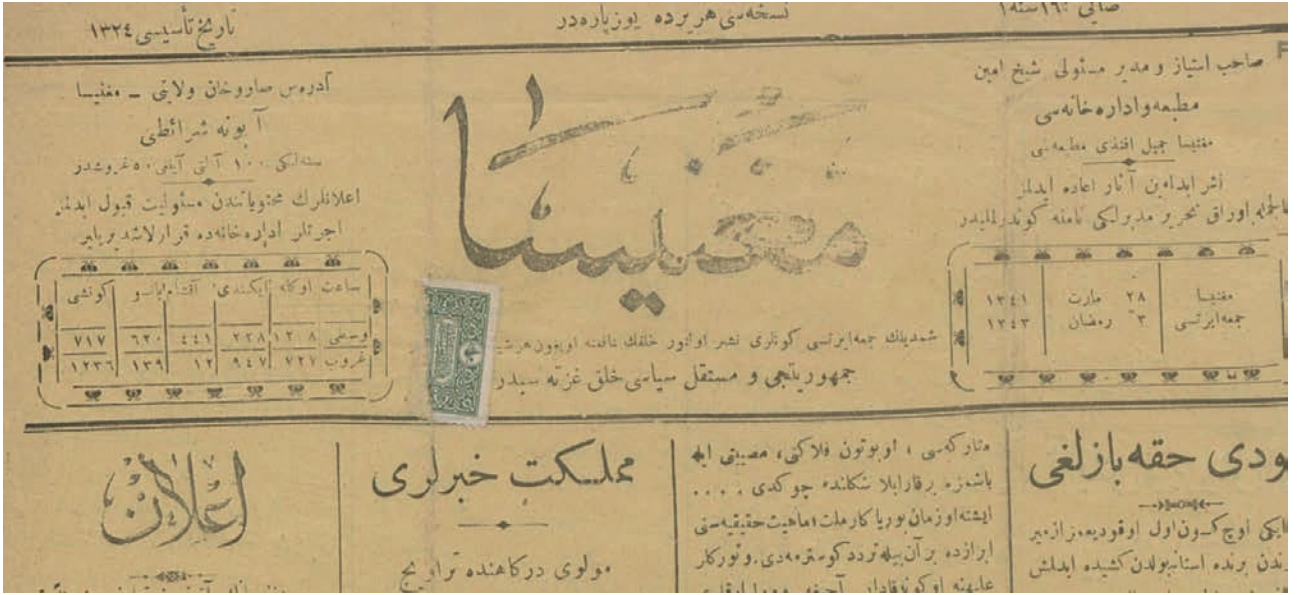 صایی : ١٦ سنه ١
نسخه‌سی هر یرده یوز پاره‌در
تاریخ تأسیسی ١٣٢٤
صاحب امتیاز و مدیر مسئولی شیخ امین
مطبعه و اداره خانه‌سی
مغنیسا جمیل افندی مطبعه‌سی
نشر ایدلمه‌ین آثار اعاده ایدلمز
اوراق تحریر مدیرلكی نامنه كوندرلملیدر
مغنیسا ٢٨ مارت ١٣٤١
جمعه‌ایرتسی ٣ رمضان ١٣٤٣
مغنیسا
شمدیلك جمعه‌ایرتسی كونلری نشر اولنور خلقك نافعنه اویغون هر
جمهوریتجی و مستقل سیاسی خلق غزته سیدر
آدرس صاروخان ولایتی ـ مغنیسا
آبونه شرائطی
سنه‌لكی ١٠٠ آلتی آیلغی ٥٠ غروشدر
اعلانلرك محتویاتندن مسئولیت قبول ایدلمز
اجرتلر اداره‌خانه‌ده قرارلاشدیریلیر
ساعت اوكله ایكندی آقشام یاتسو كونشی
وسطی ١٢٠٨ ٢٣٨ ٤٤١ ٦٢٠ ٧١٧
غروب ٧٢٧ ٩٤٧ ١٢ ١٣٩ ١٢٣٦
ودی حقه بازلغی
ایكی اوچ كون اول اوقودیغمز ازمیر
ندن برنده استانبولدن كشیده ایدلمش
متاركه‌سی ، او بوتون فلاكتی، مصیبتی ایله
باشمزه برقارابلا شكلنده چوكدی . . . .
ایشته او زمان بو ریاكار ملت، ماهیت حقیقیه‌سنی
ابرازده بر آن بیله تردد كوسترمه‌دی. و توركلر
علیهنه
مملكت خبرلری
مولوی دركاهنده تراویح
اعلان